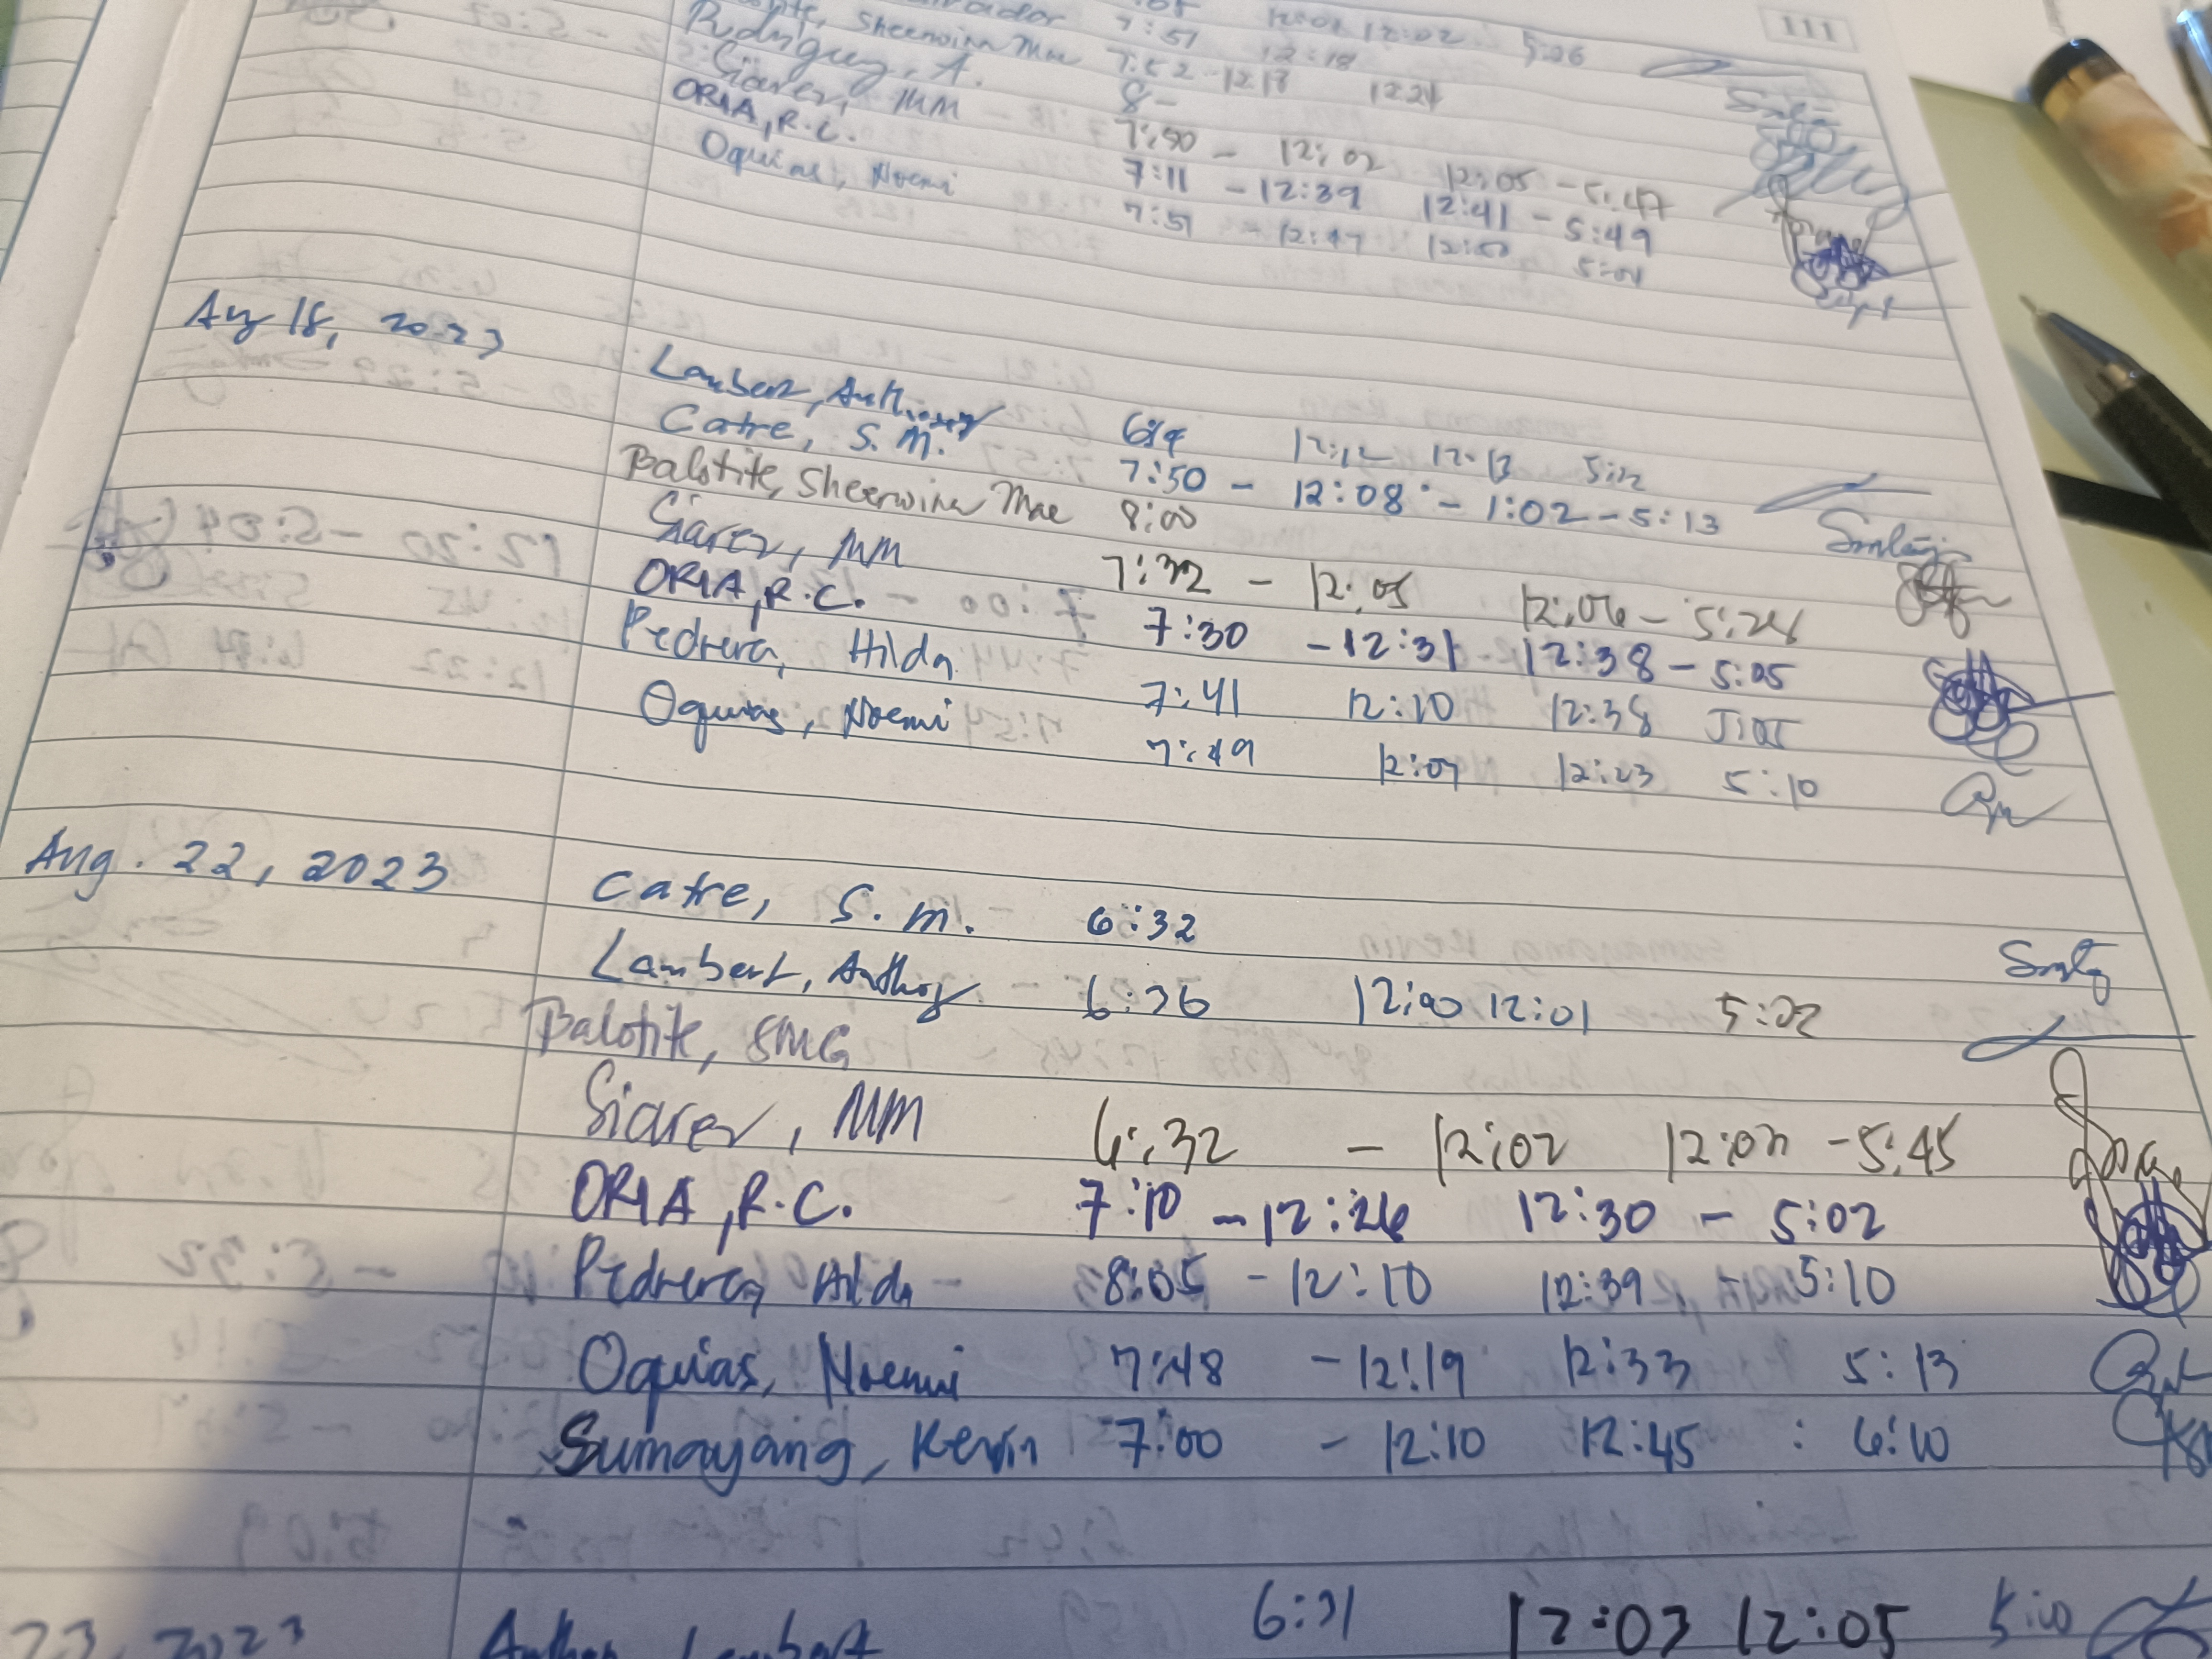 111
12:02 5:06
Sheerwina Mae 7:51 12:18
Rodriguez, A. 7:52 - 12:18 1221
Siarez, MM 8-
ORIA, R.C. 7:50 - 12:02 12:05 - 5:47
Oquias, Noemi 7:11 - 12:39 12:41 - 5:49
7:51 - 12:47 12:50 5:01
Aug 18, 2023
Lambert, Anthony 12:12 12:13 5:12
Catre, S. M. 7:50 - 12:08 - 1:02 - 5:13
Balotite, Sheerwina Mae 8:00
Siarez, MM 7:32 - 12:05 12:06 - 5:28
ORIA, R.C. 7:30 - 12:31 12:38 - 5:05
Pedrera, Hilda 7:41 12:10 12:38
Oquias, Noemi 7:49 12:07 12:23 5:10
Aug. 22, 2023
Catre, S. M. 6:32
Lambert, Anthony 6:36 12:00 12:01 5:02
Balotite, SMG
Siarez, MM 6:32 - 12:02 12:03 - 5:45
ORIA, R.C. 7:10 - 12:26 12:30 - 5:02
Pedrera, Hilda 8:05 - 12:10 12:39 5:10
Oquias, Noemi 7:48 - 12:19 12:33 5:13
Sumayang, Kevin 7:00 - 12:10 12:45 : 6:10
23, 2023 Anthony Lambert 6:31 12:03 12:05 5:00